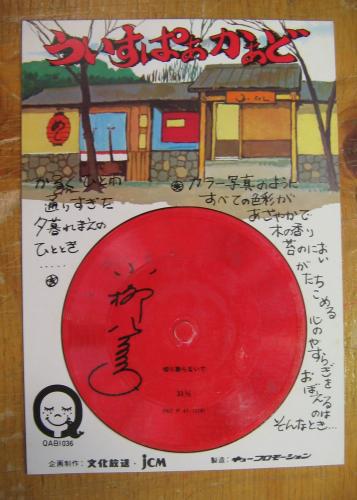 ういすぱあかあど
から　ひと雨
通りすぎた
夕暮れまえの
ひととき
・・・・・
カラー写真のように
すべての色彩が
あざやかで
木の香り
苔のにおい
がたちこめる
心のやすらぎを
おぼえるのは
そんなとき…
小柳
切り取らないで
33⅓
QAB1036
企画制作：文化放送・JCM
製造：キュープロモーション